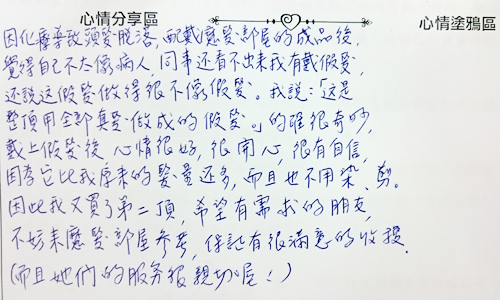 心情分享區 心情塗鴉區
因化療導致頭髮脫落,配戴應髮部屋的成品後,
覺得自己不太像病人,同事還看不出來我有戴假髮,
還說這假髮做得很不像假髮。我說:「這是
整頂用全部真髮做成的假髮。」的確很奇妙,
戴上假髮後心情很好,很開心,很有自信,
因為它比我原來的髮量還多,而且也不用染、剪。
因此我又買了第二頂,希望有需求的朋友,
不妨來應髮部屋參考,保証有很滿意的收穫.
(而且她們的服務很親切喔!)